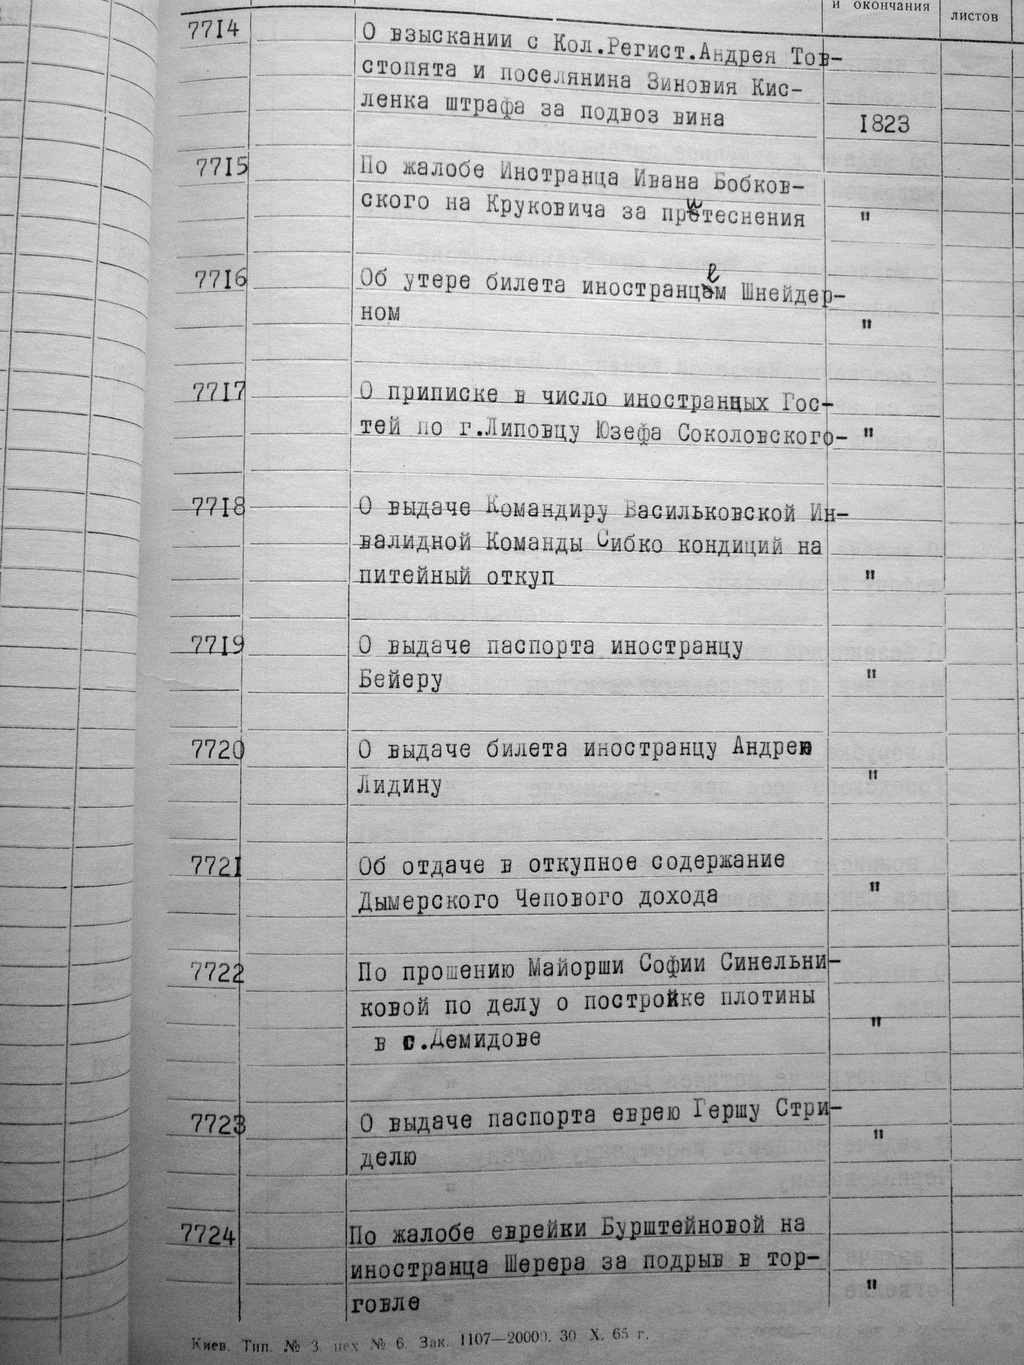 и окончания
листов
7714 О взыскании с Кол.Регист.Андрея Тов-
стопята и поселянина Зиновия Кис-
ленка штрафа за подвоз вина 1823
7715 По жалобе Иностранца Ивана Бобков-
ского на Круковича за притеснения "
7716 Об утере билета иностранцем Шнейдер-
ном "
7717 О приписке в число иностранных Гос-
тей по г.Липовцу Юзефа Соколовского- "
7718 О выдаче Командиру Васильковской Ин-
валидной Команды Сибко кондиций на
питейный откуп "
7719 О выдаче паспорта иностранцу
Бейеру "
7720 О выдаче билета иностранцу Андрею
Лидину "
7721 Об отдаче в откупное содержание
Дымерского Чепового дохода "
7722 По прошению Майорши Софии Синельни-
ковой по делу о постройке плотины
в с.Демидове "
7723 О выдаче паспорта еврею Гершу Стри-
делю "
7724 По жалобе еврейки Бурштейновой на
иностранца Шерера за подрыв в тор-
говле "
Киев. Тип. № 3 цех № 6 Зак. 1107—20000. 30 X. 65 г.